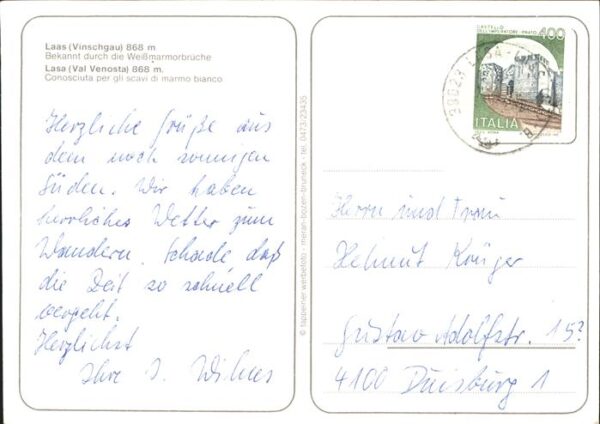 Laas (Vinschgau) 868 m
Bekannt durch die Weißmarmorbrüche
Lasa (Val Venosta) 868 m.
Conosciuta per gli scavi di marmo bianco
Herzliche Grüße aus
dem noch sonnigen
Süden. Wir haben
herrliches Wetter zum
Wandern. Schade daß
die Zeit so schnell
vergeht.
Herzlichst
Ihre J. Wilmes
© tappeiner werbefoto - meran-bozen-bruneck - tel. 0473/23435
CASTELLO
DELL'IMPERATORE - PRATO
400
ITALIA
39023
Herrn und Frau
Helmut Krüger
Gustav Adolfstr. 15?
4100 Duisburg 1